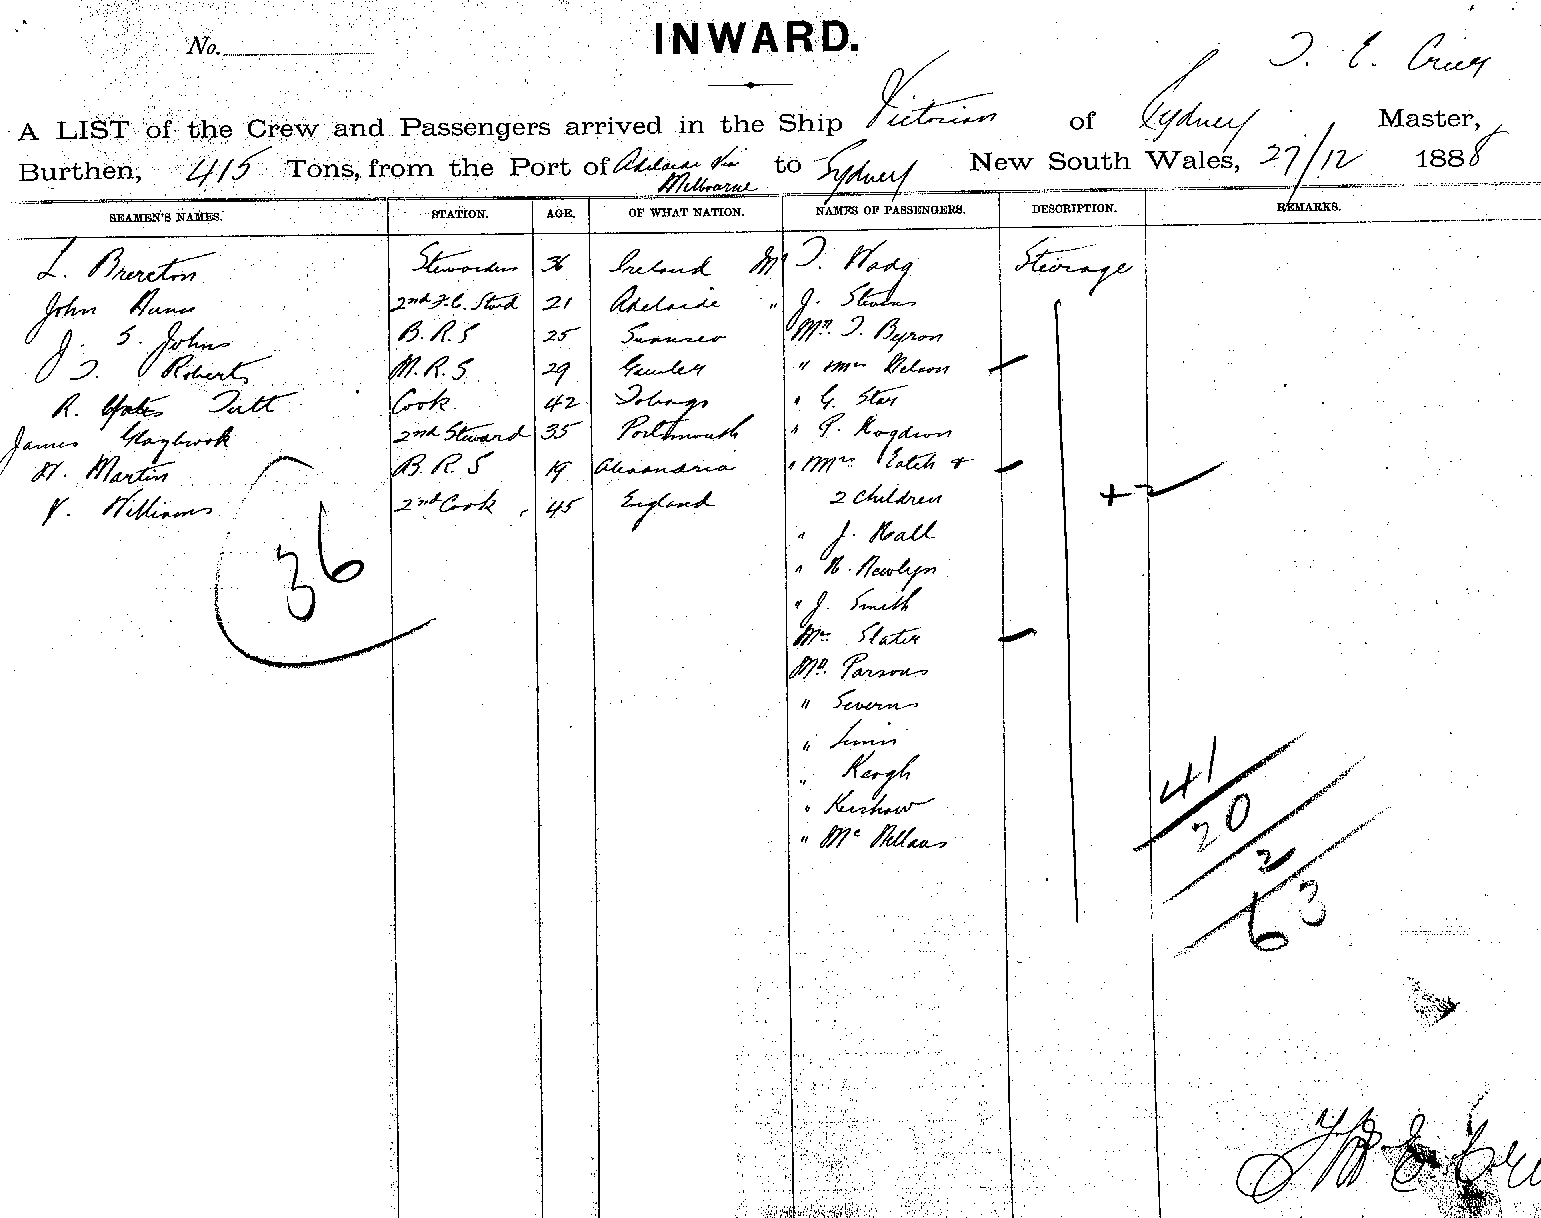 No.
INWARD.
T. E. Creer
A LIST of the Crew and Passengers arrived in the Ship Victorian of Sydney Master,
Burthen, 415 Tons, from the Port of Adelaide via Melbourne to Sydney New South Wales, 27/12 1888
SEAMEN'S NAMES. STATION. AGE. OF WHAT NATION. NAMES OF PASSENGERS. DESCRIPTION. REMARKS.
L. Brereton Stewardess 36 Ireland Mr T. Steerage
John 2nd 21 Adelaide " J. Stevens
J. S. Johns B.R.S 25 Swansea Mr. T. Byron
T. Roberts M.R.S. 29 Gawler " Mrs Nelson
R. Yates Tutt Cook 42 Tobago " G. Star
James Claybrook 2nd Steward 35 Portsmouth "
H. Martin B.R.S 19 Alexandria " Mrs +
V. Williams 2nd Cook 45 England 2 Children +2
" J. Hall
36
" H. Newlyn
" J. Smith
Mrs Slater
Mr. Parsons
" Severns
"
" Keogh
" Kershaw
" Mc
41
20
2
63